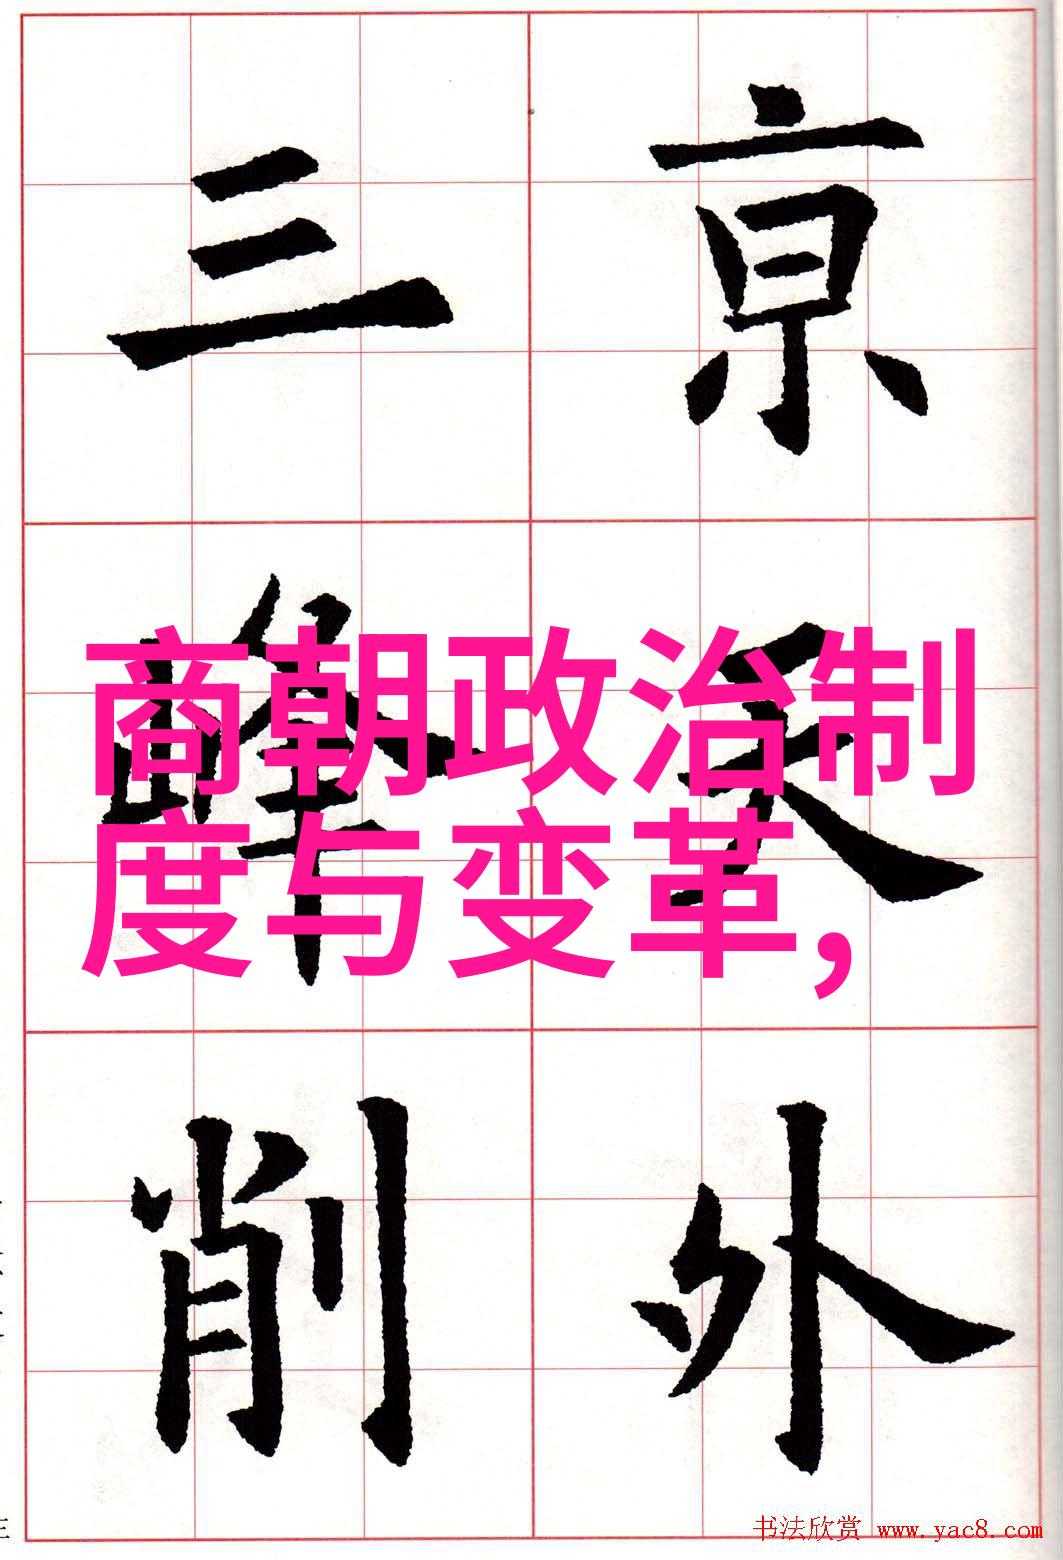 亰天外
三峰削
商朝政治制
度与变革,
书法欣赏 www.yac8.com